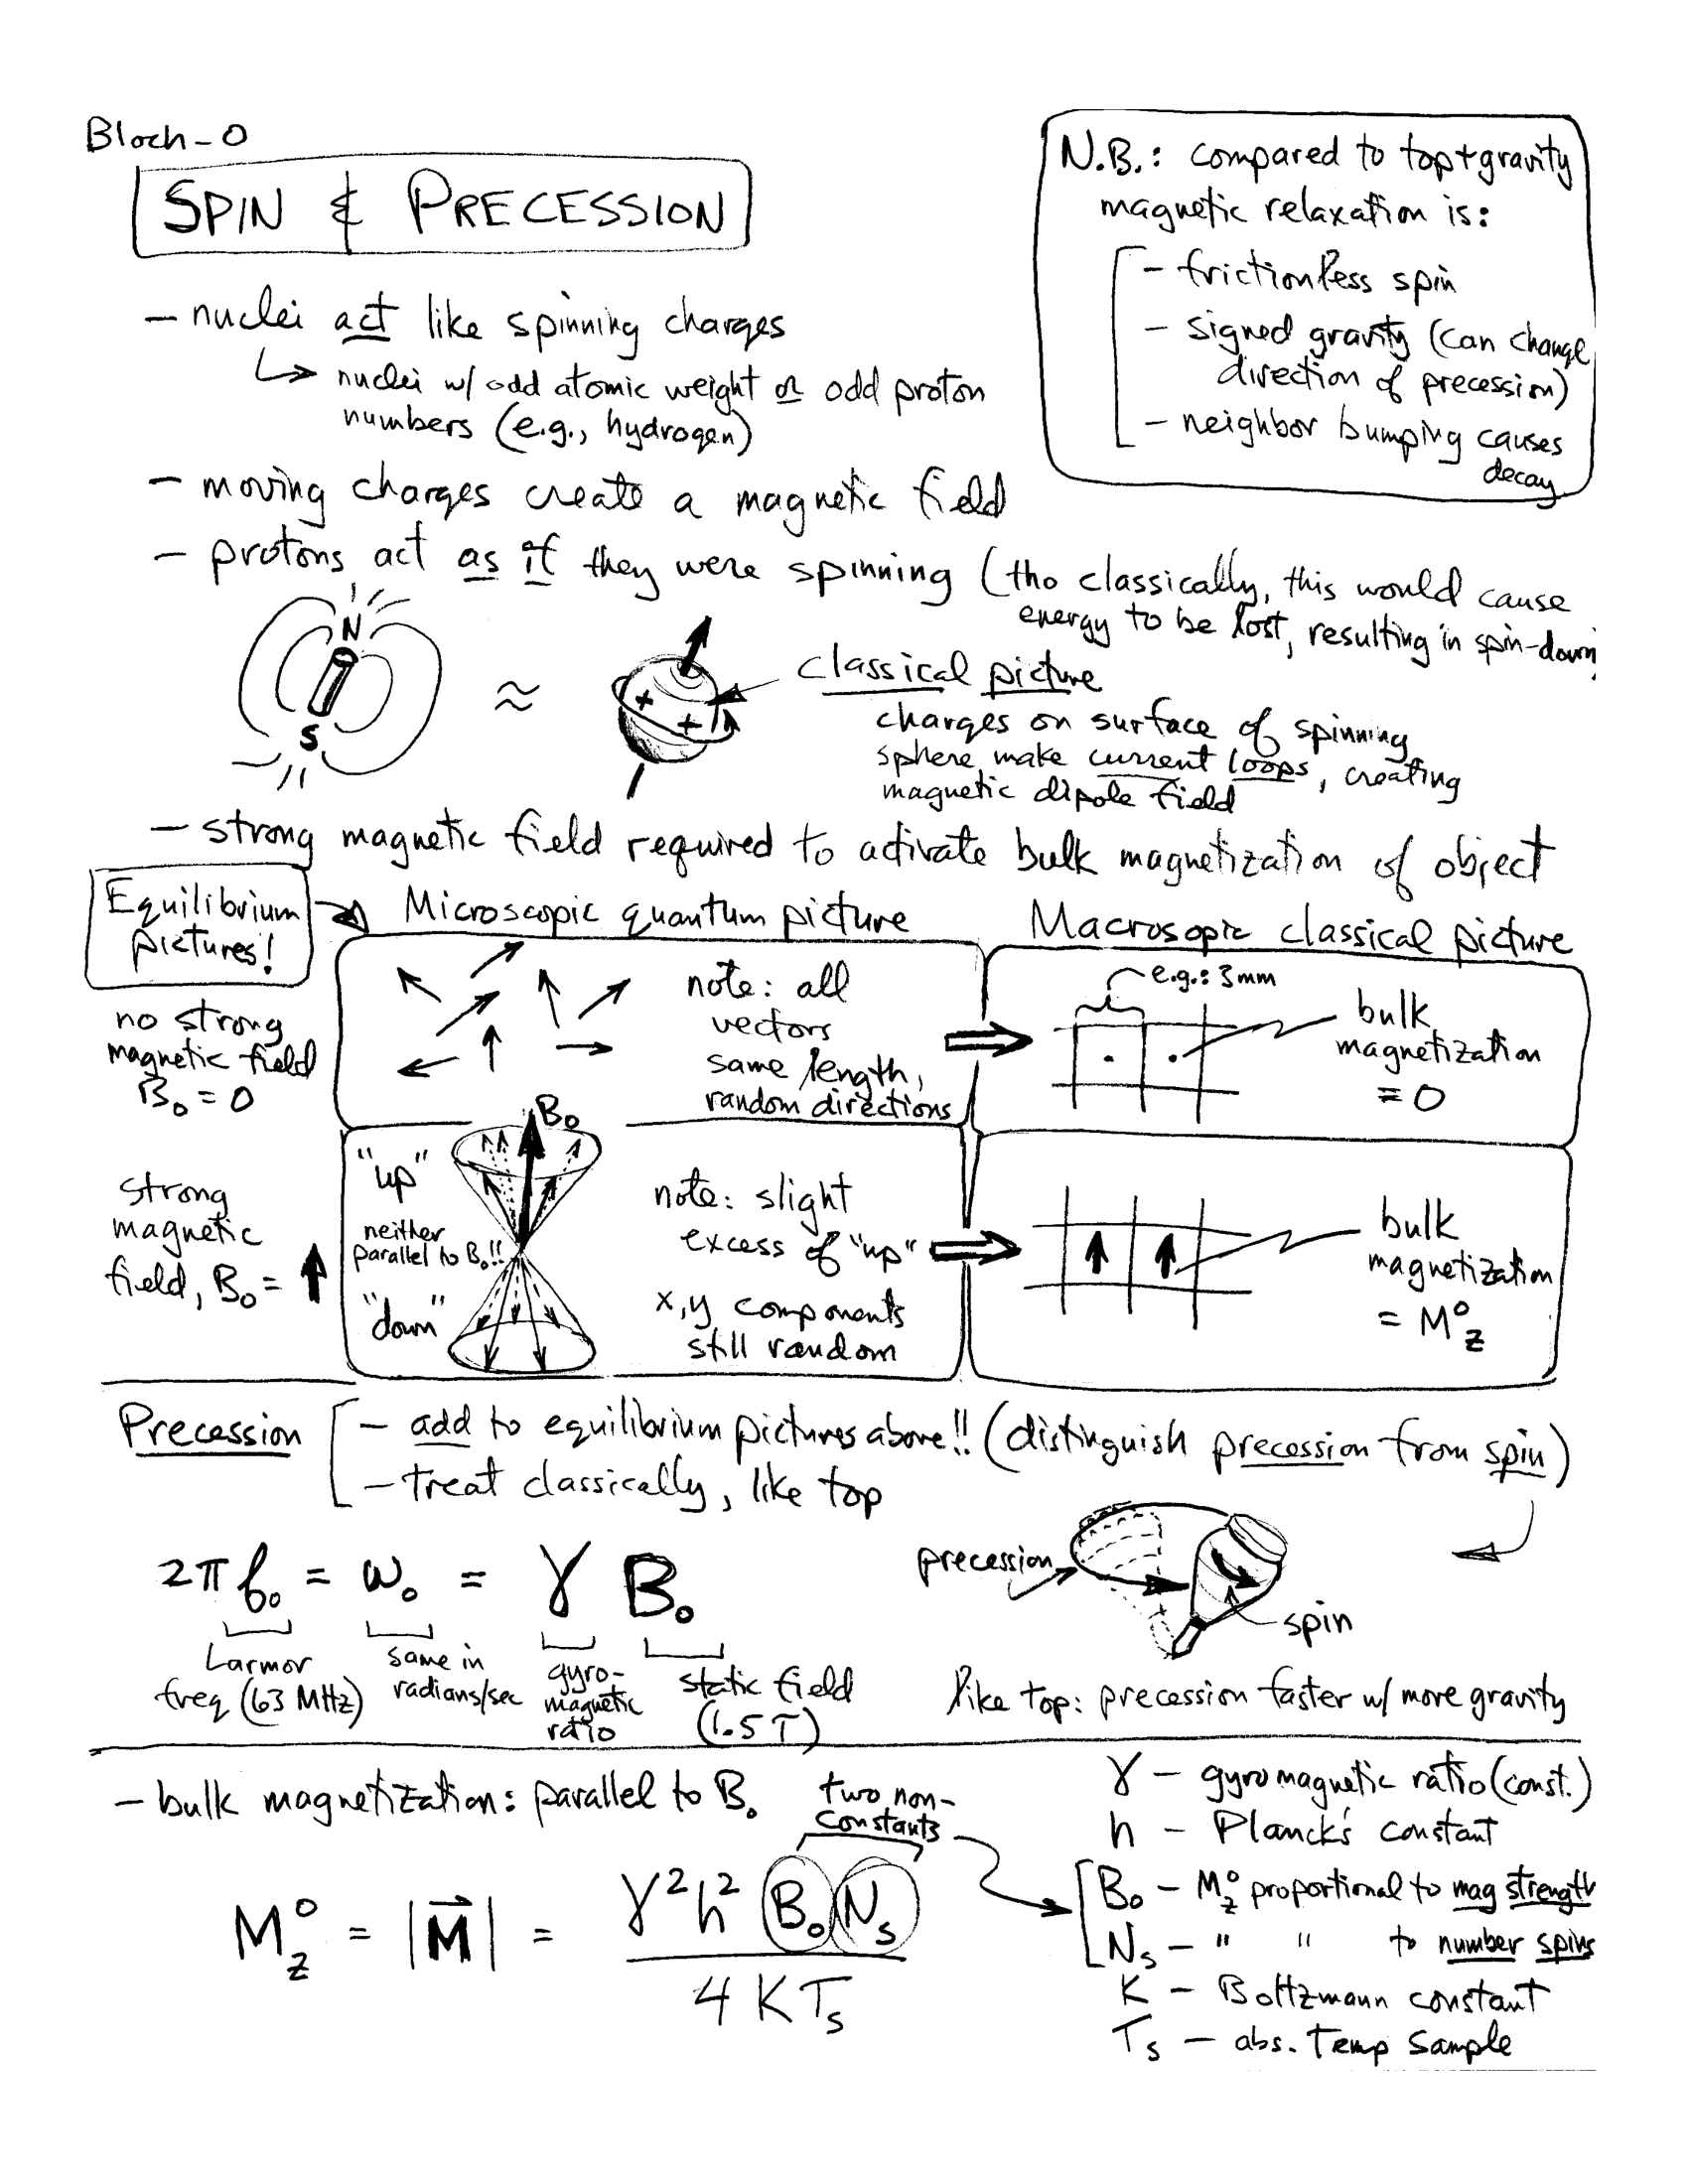 Bloch-0
SPIN & PRECESSION
N.B.: compared to top+gravity
magnetic relaxation is:
- frictionless spin
- signed gravity (can change
direction of precession)
- neighbor bumping causes
decay
- nuclei act like spinning charges
↳ nuclei w/ odd atomic weight or odd proton
numbers (e.g., hydrogen)
- moving charges create a magnetic field
- protons act as if they were spinning (tho classically, this would cause
energy to be lost, resulting in spin-down)
N
S
≈
+ +
classical picture
charges on surface of spinning
sphere make current loops, creating
magnetic dipole field
- strong magnetic field required to activate bulk magnetization of object
Equilibrium
pictures!
Microscopic quantum picture
Macrosopic classical picture
no strong
magnetic field
B₀ = 0
note: all
vectors
same length,
random directions
e.g.: 3mm
bulk
magnetization
= 0
strong
magnetic
field, B₀ = ↑
B₀
"up"
neither
parallel to B₀!!
"down"
note: slight
excess of "up"
x,y components
still random
bulk
magnetization
= M_z⁰
Precession
- add to equilibrium pictures above!! (distinguish precession from spin)
- treat classically, like top
2π f₀ = ω₀ = γ B₀
Larmor
freq (63 MHz)
same in
radians/sec
gyro-
magnetic
ratio
static field
(1.5 T)
precession
spin
like top: precession faster w/ more gravity
- bulk magnetization: parallel to B₀
two non-
constants
M_z⁰ = |M⃗| = γ²h² B₀ N_s / 4KT_s
γ - gyromagnetic ratio (const.)
h - Planck's constant
B₀ - M_z⁰ proportional to mag strength
N_s - " " to number spins
K - Boltzmann constant
T_s - abs. Temp sample